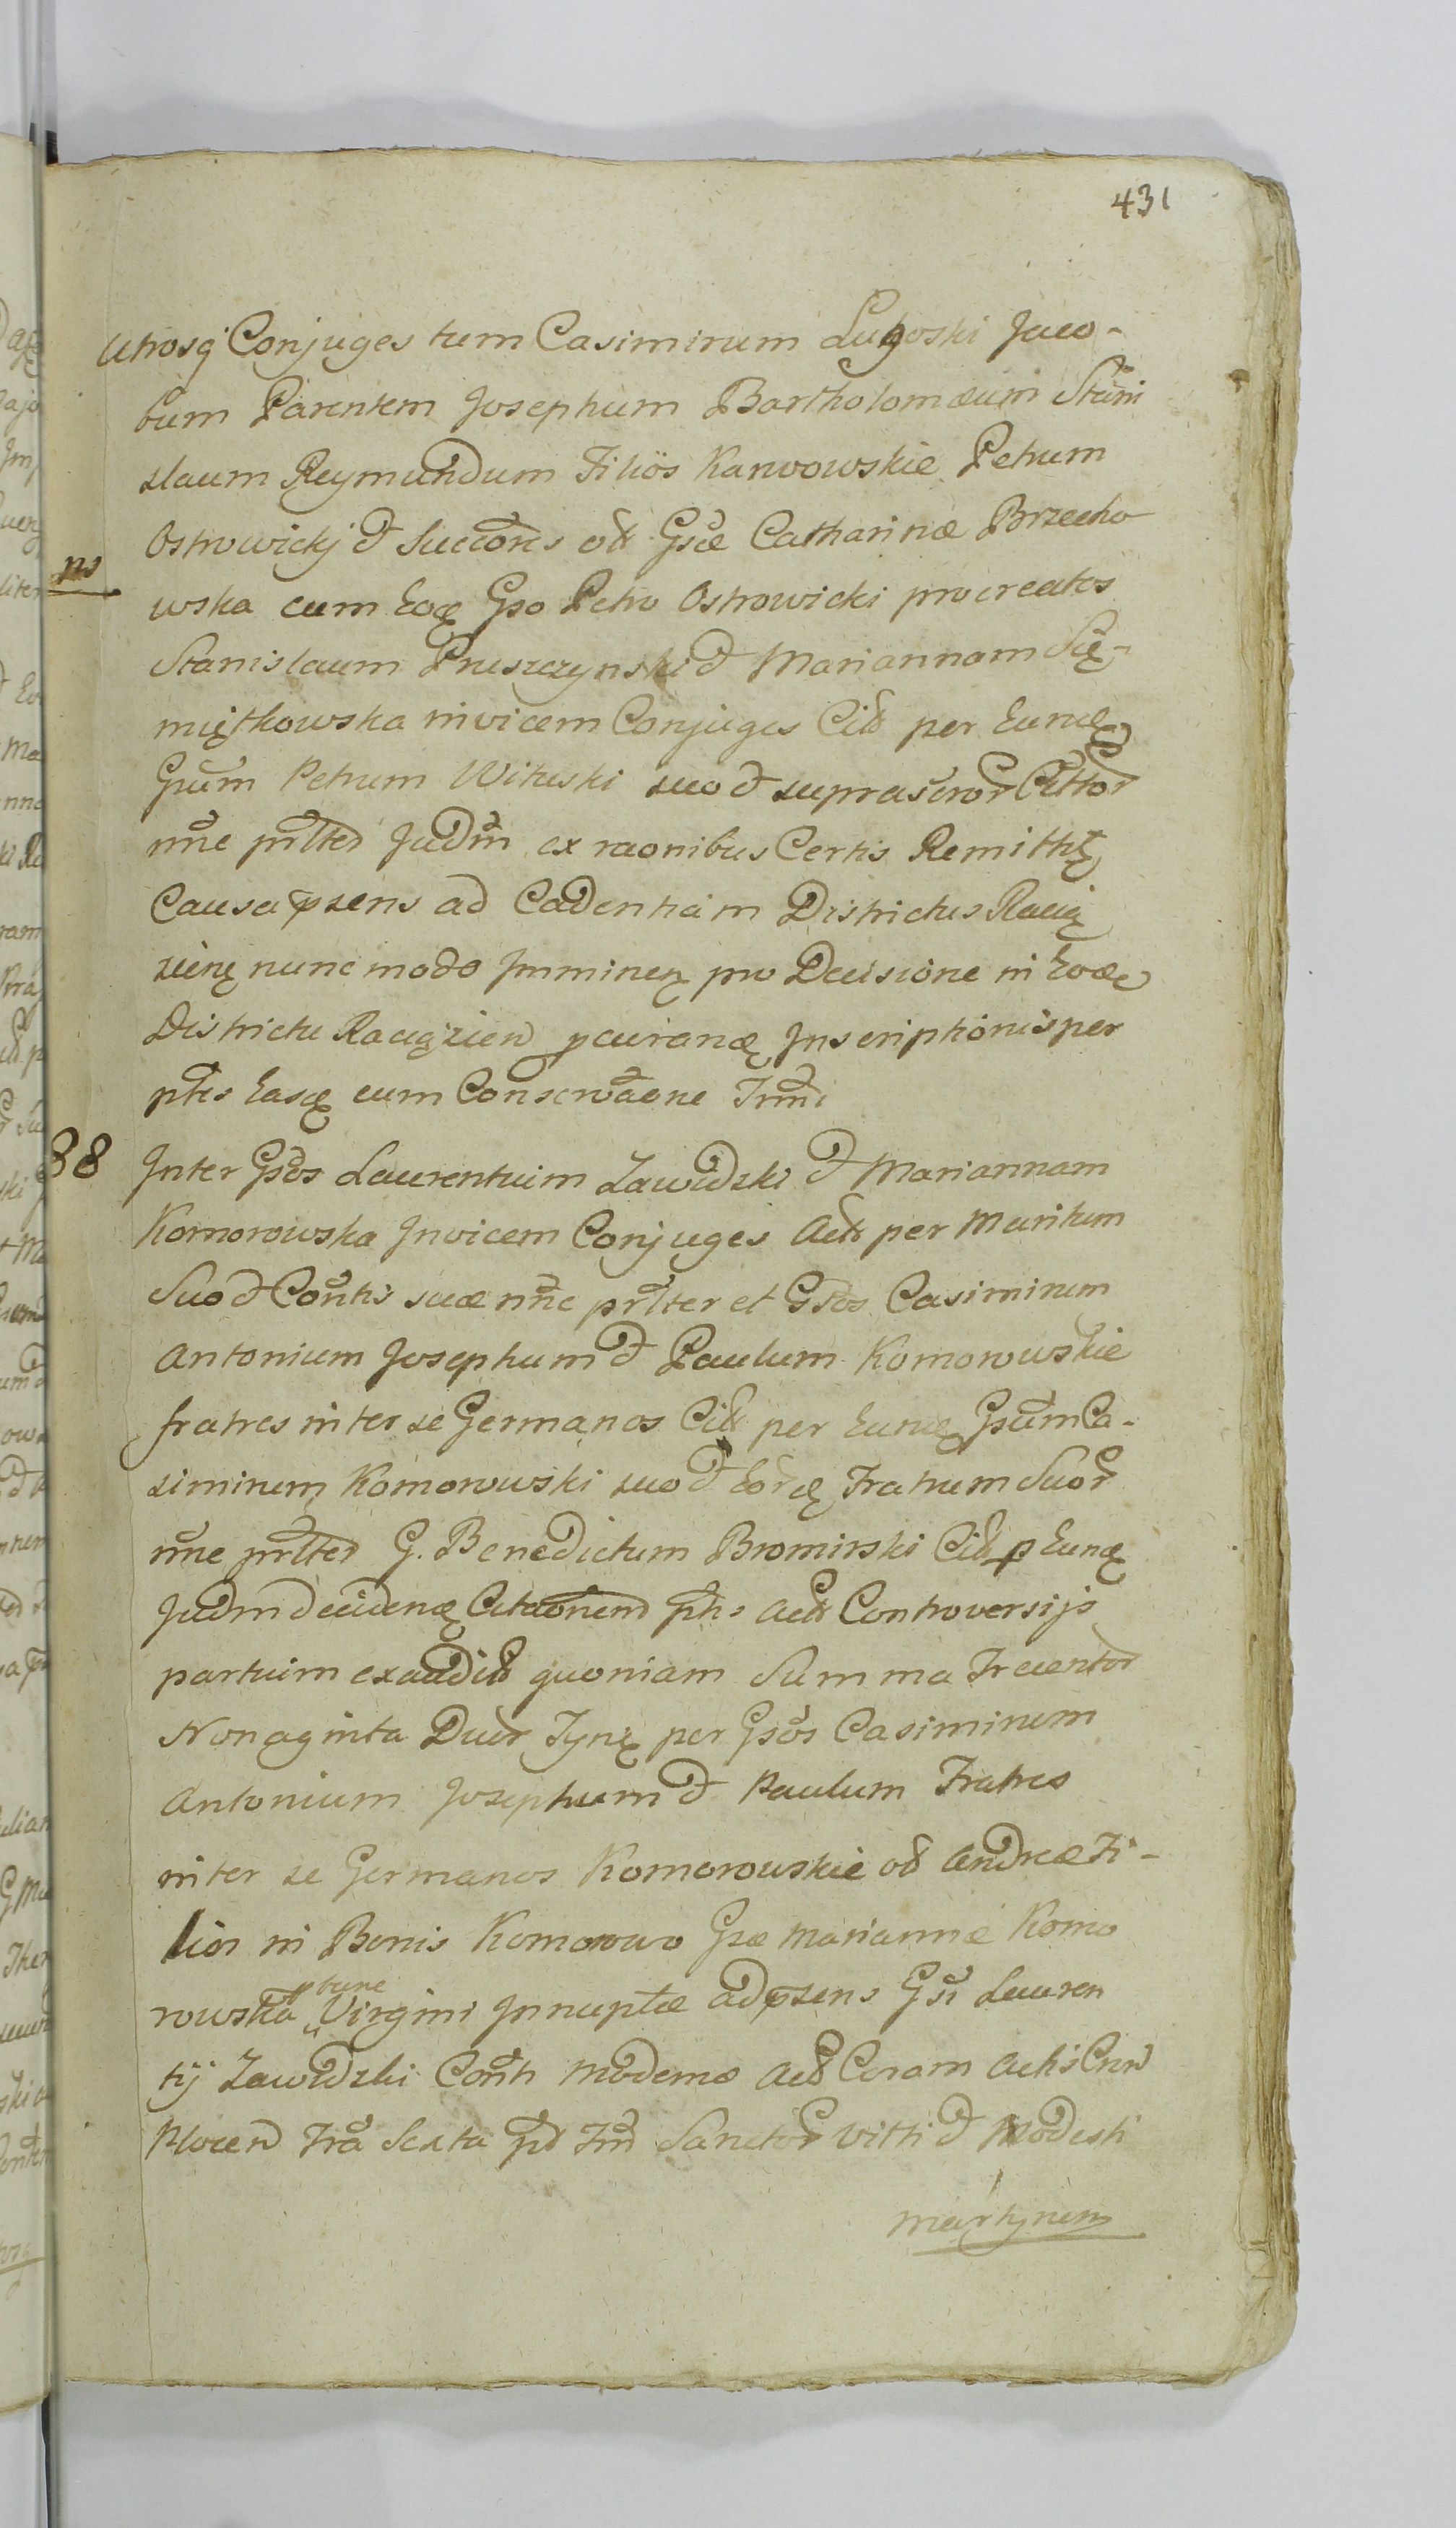 431
Utrosq Conjuges tum Casimirum Lukoski Jaco-
bum Parentem Josephum Bartholomæum Stani
slaum Reymundum Filios Karwowskie Petrum
Ostrowickj et Succores olt Gsæ Catharinæ Brzecho
wska cum Eodę Gso Petro Ostrowicki procreatos
Stanislaum Pruszczynski et Mariannam Się-
miętkowska invicem Conjuges Citt per Eundę
Gsum Petrum Wituski suo et suprascror Cittor
nne prlter Judm ex raonibus Certis Remittit
Causa psens ad Cadentiam Districtus Racią
zienę nunc modo Imminen pro Decisione in Eodę
Districtu Raciązien pcurandę Inscriptionis per
ptes Easdę cum Conservaone Trmi
38 Inter Gsos Laurentium Zawidzki et Mariannam
Komorowska Invicem Conjuges Actt per Maritum
Suo et Contis suæ nne prlter et Gsos Casimirum
Antonium Josephum et Paulum Komorowskie
fratres inter se Germanos Citt per Eundę Gsum Ca-
simirum Komorowski suo et Eordę Fratrum Suor
nne prlter G. Benedictum Bromirski Citt p Eundę
Judm decidendę Citaonem ptis Actt Controversijs
partium exaudit quoniam Summa Trecentor
Nonaginta Duor Tynę per Gsos Casimirum
Antonium Josephum et Paulum Fratres
inter se Germanos Komorowskie olt Andreæ Fi-
lios in Bonis Komorowo Gsæ Mariannæ Komo
rowska tunc Virgini Innuptæ ad psens Gsi Lauren
tij Zawidzki Conti modernæ Actt Coram Actis Cnn
Plocen Fra Sexta pt Fm Sanctor Vitti et Modesti
Martyrum